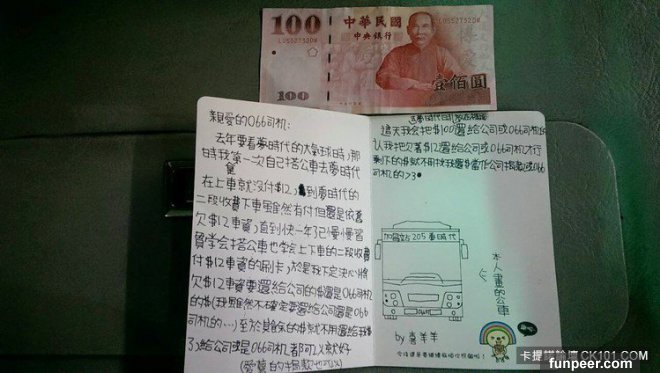 100
LU552732DW
中華民國
中央銀行
100
壹佰圓
親愛的066司机:
去年要看夢時代的大氣球時,那
時我第一次自己搭公車去夢時代
在上車就沒付$12,到夢時代的
二段收費下車雖然有付但還是依舊
欠$12車資,直到快一年了已慢慢習
慣學會搭公車也學會上下車的二段收費
付$12車資的刷卡,於是我下定決心將
欠$12車資要還給公司的$還是066司机
的$(我雖然不確定要還給公司還是066
司机的…)至於剩餘的$就不用還給我
了,給公司或是066司机都可以就好
這天我會把$100還給公司或066司机
認我把欠著$12還給公司或066司机才行
剩下的$就不用找我還$當作公司捐款或066
司机的>3●
加昌站 205 夢時代
本人畫的公車
by 喜羊羊
卡提諾論壇 CK101.COM
funpeer.com